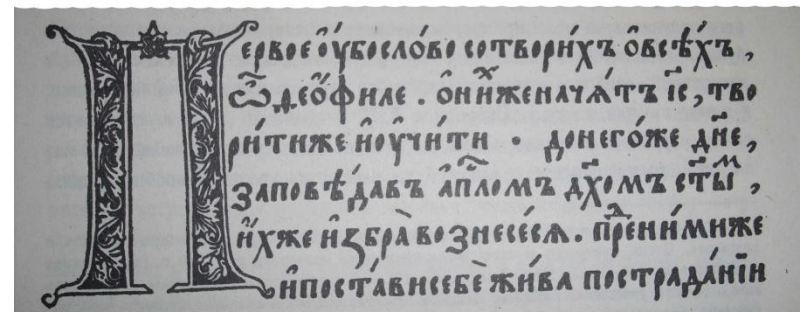 Первое ᲂу҆бо сло́во сотвори́хъ ѻ҆ всѣ́хъ,
ѽ део́филе. ѻ҆ ни́хже начѧ́тъ і҆с҃, тво
ри́ти же и҆ ᲂу҆чи́ти · до него́же дн҃е,
заповѣ́давъ а҆пⷭ҇ломъ дх҃омъ ст҃ыⷨ,
и҆́хже и҆збра̀ вознесе́сѧ. преⷣ ни́миже
и҆ поста́ви себѐ жи́ва по страда́нїи